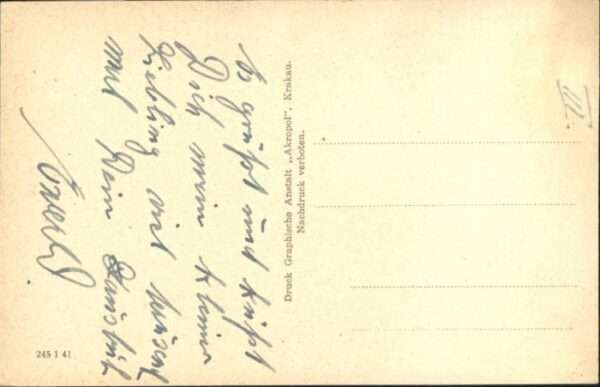 Es grüßt und küßt
Dich mein kleiner
Liebling viel
und Dein
Druck Graphische Anstalt „Akropol“, Krakau.
Nachdruck verboten.
III.
245 I 41